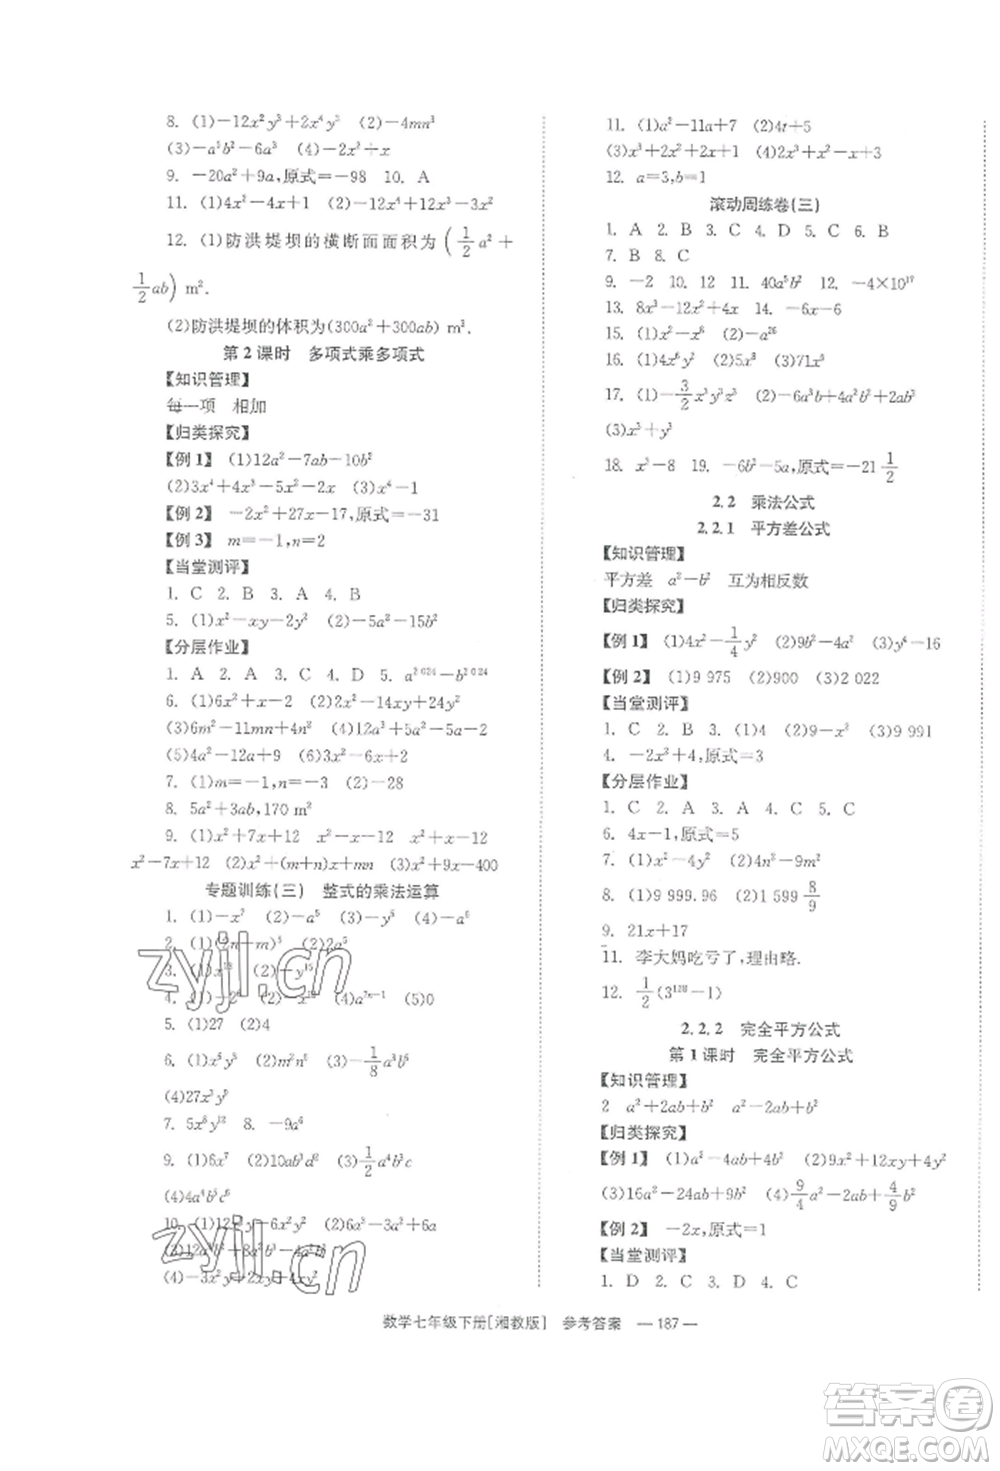 8. (1)-12x²y³+2x⁴y² (2)-4mn³
(3)-a⁵b²-6a³ (4)-2x³÷x
9. -20a²+9a,原式=-98 10. A
11. (1)4x²-4x+1 (2)-10x⁴-13x³
12. (1)防洪堤坝的横断面面积为(1/2a²+
1/2ab) m².
(2)防洪堤坝的体积为(300a²+300ab) m³.
第2课时 多项式乘多项式
【知识管理】
每一项 相加
【归类探究】
【例1】 (1)12a²-7ab-10b²
(2)3x⁴+4x³-5x²-2x (3)x⁴-1
【例2】 -2x²+27x-17,原式=-31
【例3】 m=-1,n=2
【当堂测评】
1. C 2. B 3. A 4. B
5. (1)x²-xy-2y² (2)-5a²-15b²
【分层作业】
1. A 2. A 3. A 4. D 5. a²⁰²⁴-b²⁰²⁴
6. (1)6x²+x-2 (2)2x²-14xy+24y²
(3)6m²-11mn+4n² (4)2a³+5a²-5a-2
(5)4a²-12a+9 (6)x³-6x+2
7. (1)m=-1,n=-3 (2)-28
8. 5a²+3ab,170 m²
9. (1)x²+7x+12 x²-x-12 x²+x-12
x²-7x+12 (2)x²+(m+n)x+mn (3)x²+9x-400
专题训练(三) 整式的乘法运算
1. (1)-x⁷ (2)-a⁵ (3)-y⁵ (4)-a⁶
2. (1)(2n+m)⁵ (2)2a⁵
3. (1)x¹⁸ (2)-y¹⁵
4. (1)-2⁶ (2)-a⁵ (3)x¹⁰ (4)a⁷ⁿ⁻¹ (5)0
5. (1)27 (2)4
6. (1)x³y³ (2)m²n⁶ (3)-1/8a³b⁶
(4)27x³y⁹
7. 5x⁸y¹² 8. -9a⁶
9. (1)6x⁷ (2)10ab³d² (3)1/2a⁴b³c
(4)4a⁴b³c⁶
10. (1)12x³y-6x²y² (2)6a³-3a²+6a
(4)-3x²y²+2xy+4xy²
11. (1)a²-11a+7 (2)4t+5
(3)x³+2x²+2x+1 (4)2x³-x²-x+3
12. a=3,b=1
滚动周练卷(三)
1. A 2. B 3. A 4. C 5. A 6. B
7. B 8. C
9. -2 10. 12 11. 40a⁵b² 12. -4×10¹⁷
13. 8x³-12x²+4x 14. -6x-6
15. (1)x²-x⁶ (2)-a²⁶
16. (1)4x⁶y² (2)5x³ (3)71x³
17. (1)-3/2x³y³z³ (2)-6a³b+4a²b²+2ab³
(3)x³+y³
18. x³-8 19. -6b²-5a,原式=-21 1/2
2.2 乘法公式
2.2.1 平方差公式
【知识管理】
平方差 a²-b² 互为相反数
【归类探究】
【例1】 (1)4x²-1/4y² (2)9b²-4a² (3)y⁴-16
【例2】 (1)9 975 (2)900 (3)2 022
【当堂测评】
1. C 2. B 3. (1)4 (2)9-x² (3)9 991
4. -2x²+4,原式=2
【分层作业】
1. C 2. A 3. A 4. C 5. C
6. 4x-1,原式=5
7. (1)x²-4y² (2)4n²-9m²
8. (1)9 999.96 (2)1 599 8/9
9. 21x+17
11. 李大妈吃亏了,理由略.
12. 1/2(3¹²⁸-1)
2.2.2 完全平方公式
第1课时 完全平方公式
【知识管理】
2 a²+2ab+b² a²-2ab+b²
【归类探究】
【例1】 (1)a²-4ab+4b² (2)9x²+12xy+4y²
(3)16a²-24ab+9b² (4)9/4a²-2ab+4/9b²
【例2】 -2x,原式=1
【当堂测评】
1. D 2. C 3. A 4. C
数学七年级下册[湘教版] 参考答案 — 187 —
zyjl.cn
zyjl.cn
答案圈
MXQE.COM